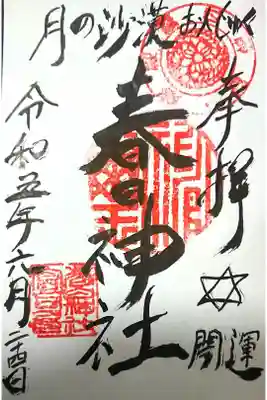 月の沙漠おんじゅく
奉拝
開運
春日神社
令和五年六月二十四日